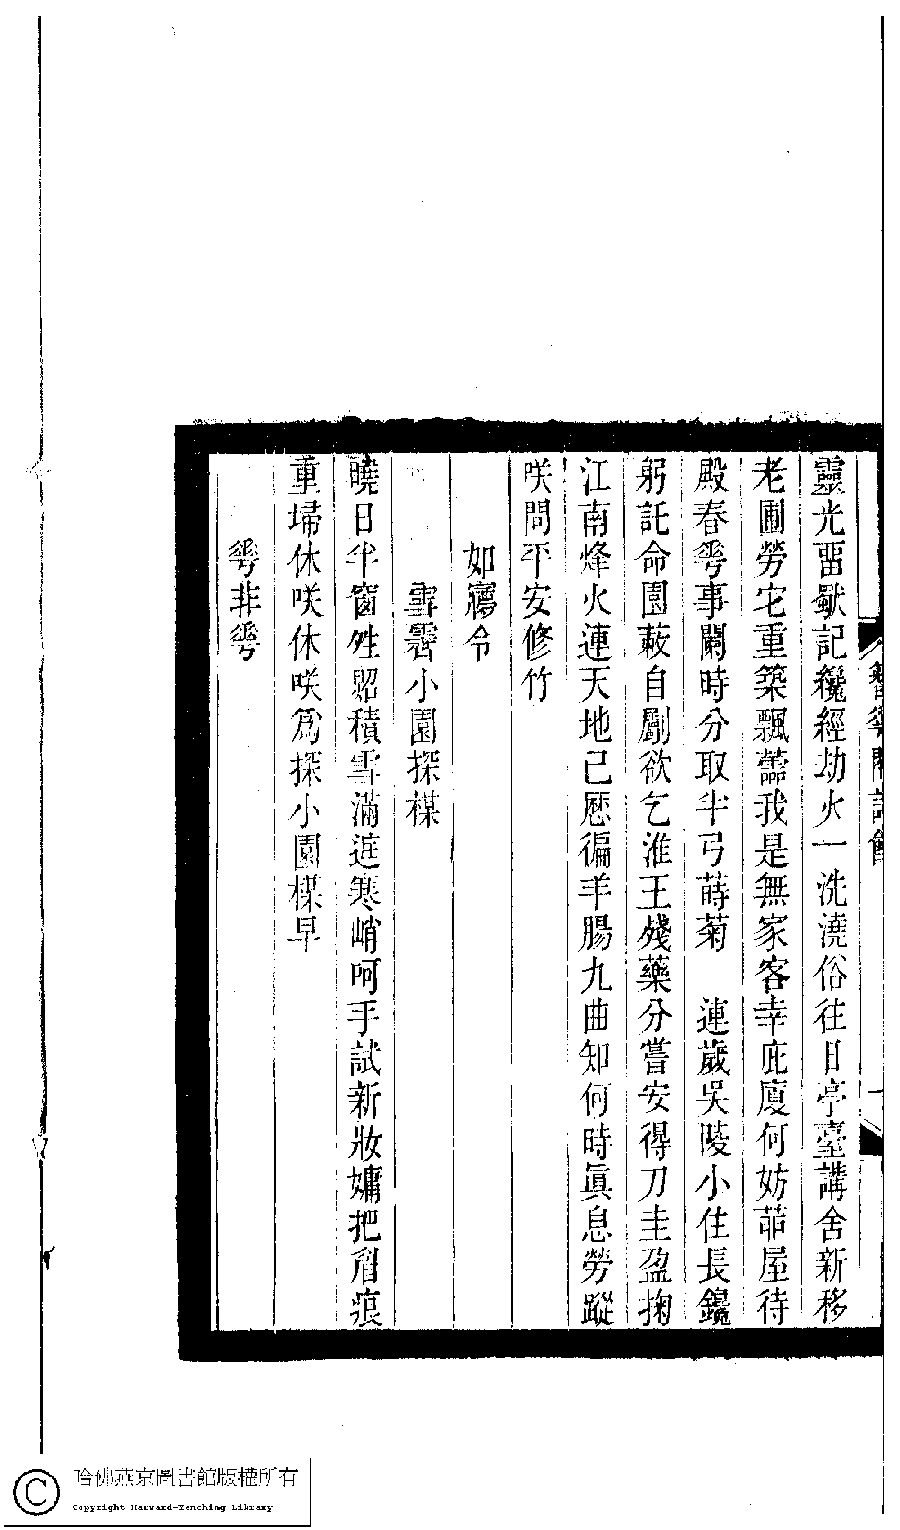 靈光畱歟記纔經劫火一洗澆俗往日亭臺講舍新移
老圃勞宅重築飄蓬我是無家客幸庇廈何妨茆屋待
殿春雩事闌時分取半弓蒔菊　連歲吳陵小住長鑱
躬託命園蔌自劚欲乞淮王殘藥分嘗安得刀圭盈掬
江南烽火連天地已歷徧羊腸九曲知何時眞息勞蹤
咲問平安修竹
如寱令
雪霽小園探楳
曉日半窗斜照積雪滿遮寒峭呵手試新妝嬾把眉痕
重埽休咲休咲爲探小園楳早
雩非雩
哈佛燕京圖書館版權所有
Copyright Harvard-Yenching Library